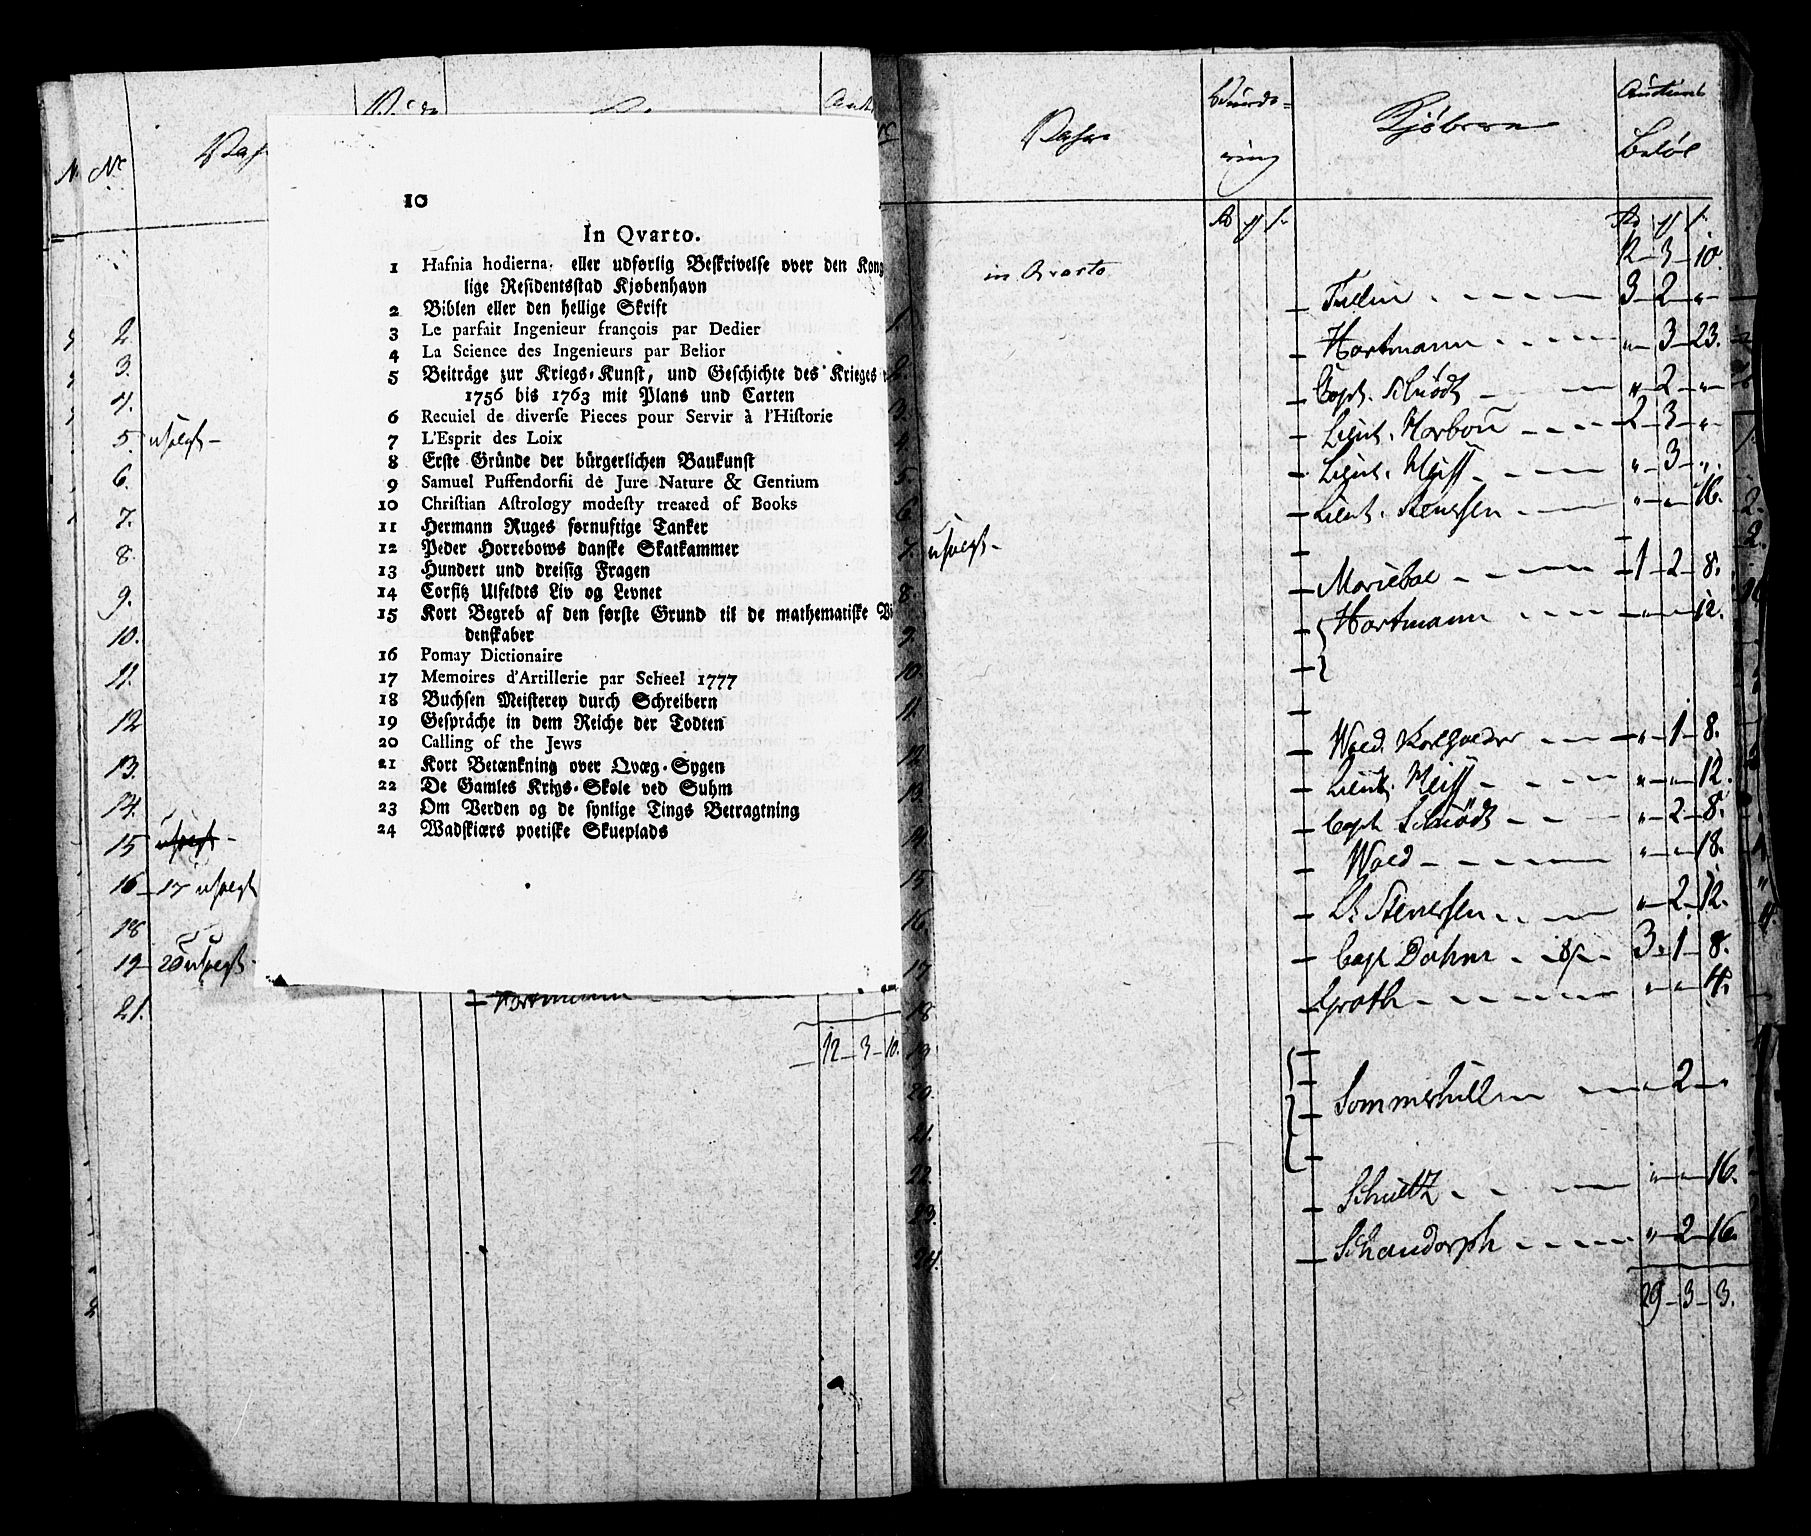 No
2
3.
4.
5. usolgt –
6.
7.
8.
9.
10.
11.
12
13.
14.
15
16 – 17 usolgt
18
19 – 20 usolgt –
21.
10
In Qvarto.
1 Hafnia hodierna, eller udførlig Beskrivelse over den Kong
lige Residentsstad Kjøbenhavn
2 Biblen eller den hellige Skrift
3 Le parfait Ingenieur françois par Dedier
4 La Science des Ingenieurs par Belior
5 Beiträge zur Kriegs-Kunst, und Geschichte des Krieges
1756 bis 1763 mit Plans und Carten
6 Recuiel de diverse Pieces pour Servir à l'Historie
7 L'Esprit des Loix
8 Erste Gründe der bürgerlichen Baukunst
9 Samuel Puffendorfii de Jure Nature & Gentium
10 Christian Astrology modesty treared of Books
11 Hermann Ruges fornuftige Tanker
12 Peder Horrebows danske Skatkammer
13 Hundert und dreisig Fragen
14 Corfitz Ulfeldts Liv og Levnet
15 Kort Begreb af den første Grund til de mathematiske Vi
denskaber
16 Pomay Dictionaire
17 Memoires d'Artillerie par Scheel 1777
18 Buchsen Meisterey durch Schreibern
19 Gespräche in dem Reiche der Todten
20 Calling of the Jews
21 Kort Betænkning over Qvæg-Sygen
22 De Gamles Krigs-Skole ved Suhm
23 Om Verden og de synlige Tings Betragtning
24 Wadskiærs poetiske Skueplads
Hartmann
12 – 3 – 10.
Vurde-
ring
Kjøberen
Auctions
Beløb
in Qvarto
12 – 3 – 10.
1. Tullin 3 – 2 – „
2. Hartmann „ – 3 – 23.
3. Capt. Schiødt „ – 2 – „
4. Lieut. Harbou 2 – 3 – „
5. Lieut. Heiss „ – 3 – „
6. Lieut. Stenersen „ – „ – 16.
7. usolgt –
8. Mariboe 1 – 2 – 8.
9. Hartmann „ – „ – 12.
10.
11.
12 Woed „ – 1 – 8.
13. Lieut. Heiss „ – „ – 12.
14 Capt Schiødt „ – 2 – 8.
15 Woed „ – „ – 18.
16. Lt Stenersen „ – 2 – 12.
17 Capt Dahm 3 – 1 – 8.
18 Groth „ – „ – 4.
19
20. Sommerhielm „ – 2 – „
21.
22. Schultz „ – „ – 16.
23.
24. Schandorph „ – 2 – 16.
29 – 3 – 3.